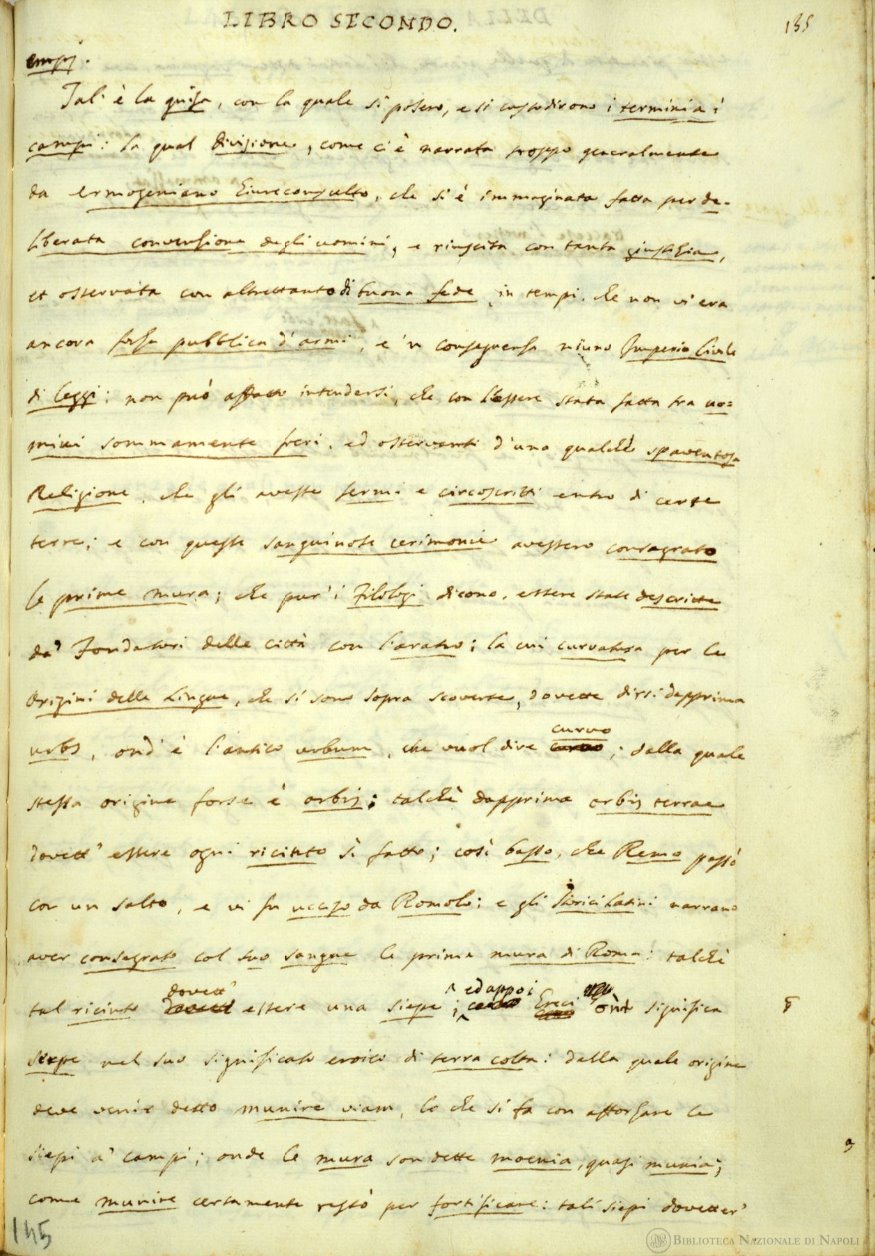 LIBRO SECONDO.
135
empj.
Tal' è la guisa, con la quale si posero, e si custodirono i termini a i
campi: la qual divisione, come c'è narrata troppo generalmente
da Ermogeniano Giureconsulto, che si è immaginata fatta per de-
liberata convenzione degli uomini, e riuscita con tanta giustizia,
et osservata con altrettanto di buona fede, in tempi, che non vi era
ancora forza pubblica d'armi, e 'n conseguenza niuno Imperio Civile
di leggi: non può affatto intendersi, che con l'essere stata fatta tra uo=
mini sommamente fieri, ed osserventi d'una qualche spaventosa
Religione, che gli avesse fermi e circoscritti entro di certe
terre; e con queste sanguinose cerimonie avessero consagrato
le prime mura; che pur' i Filologi dicono, essere state descritte
da' Fondatori delle città con l'aratro; la cui curvatura per le
Origini delle Lingue, che si sono sopra scoverte, dovette dirsi dapprima
urbs, ond' è l'antico urbum, che vuol dire curvo; dalla quale
stessa origine forse è orbis; talchè dapprima orbis terrae
dovett' essere ogni ricinto sì fatto; così basso, che Remo passò
con un salto, e vi fu ucciso da Romolo; e gli Storici Latini narrano
aver consagrato col suo sangue le prime mura di Roma: talchè
tal ricinto dovett' essere una siepe; ed appo i Greci ond significa
siepe nel suo significato eroico di terra colta: dalla quale origine
deve venir detto munire viam, lo che si fa con afforzare le
siepi a' campi; onde le mura son dette moenia, quasi munia;
come munire certamente restò per fortificare: tali siepi dovetter'
145
BIBLIOTECA NAZIONALE DI NAPOLI